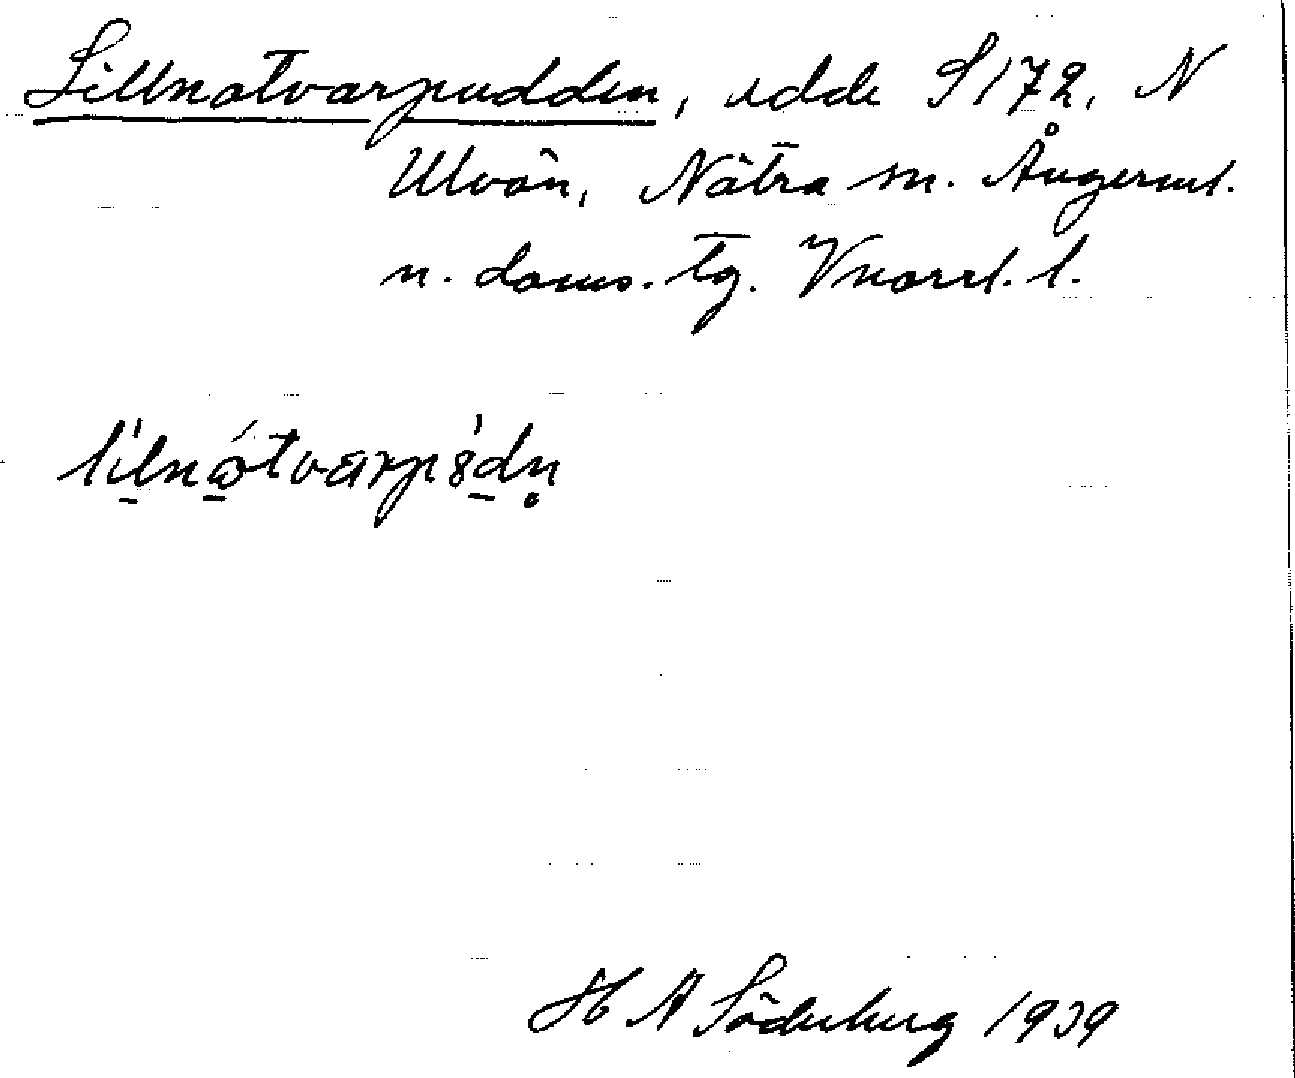 Lillnotvarpudden, udde S 172, N
Ulvön, Nätra sn. Ångerml.
n. doms. tg. Vnorrl. l.
lilnotvarpudn
H A Söderberg 1939